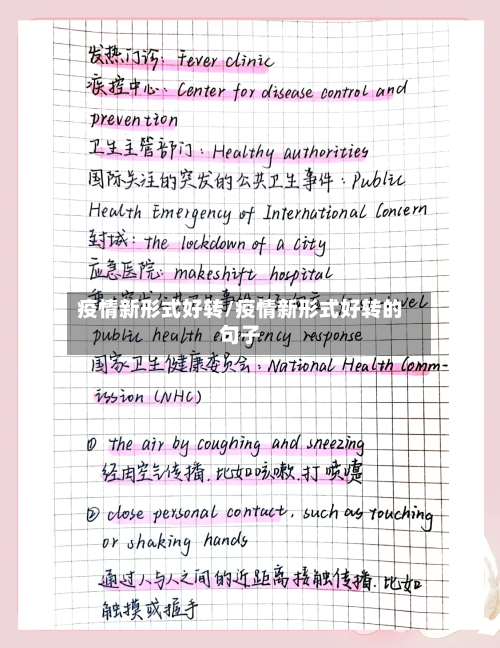 发热门诊：Fever clinic
疾控中心：Center for disease control and
prevention
卫生主管部门：Healthy authorities
国际关注的突发的公共卫生事件：Public
Health Emergency of International Concern
封城：the lockdown of a city
应急医院：makeshift hospital
疫情新形式好转/疫情新形式好转的
句子
public health emergency response
国家卫生健康委员会：National Health Comm-
ission (NHC)
① the air by coughing and sneezing
经由空气传播，比如咳嗽，打喷嚏
② close personal contact, such as touching
or shaking hands
通过人与人之间的近距离接触传播，比如
触摸或握手